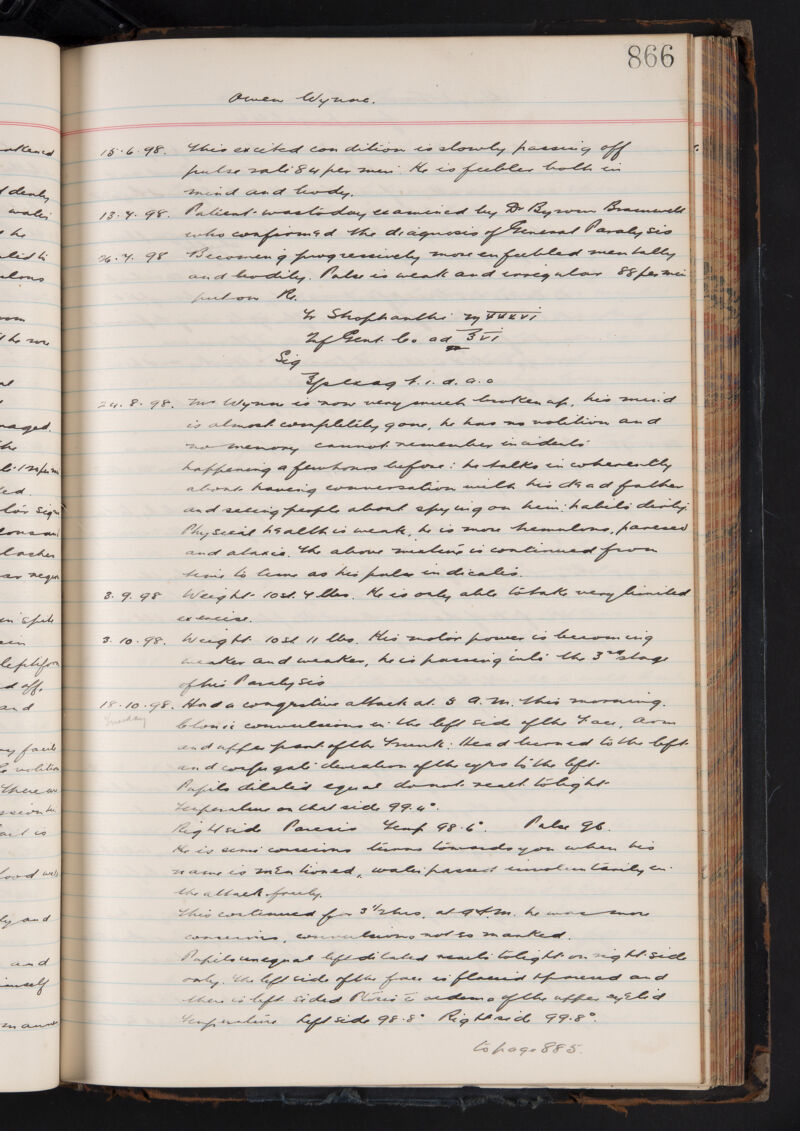 866
Owen Wynne.
15.6.98. This excited condition is slowly passing off
pulse rate 84 per min. He is feebler both in
mind and body.
13.7.98. Patient was today examined by Dr Byrom Bramwell
who confirmed the diagnosis of General Paralysis
26.7.98 Becoming progressively more enfeebled mentally
and bodily. Pulse is weak and irregular 88 per min
put on Rc.
Tr Strophanthi
Inf Gent. Co. ad ℥vi
Sig
t.i.d. a.c
24.8.98. Mr Wynne is now very much broken up, his mind
is almost completely gone, he has no volition and
no memory cannot remember incidents
happening a few hours before: he talks incoherently
about having conversation with his dead father
and seeing people about spying on him. habits dirty.
Physical health is weak, he is more tremulous, paresed
and ataxic. The above mixture is continued from
time to time as his pulse indicates.
3.9.98 Weight 10st. 4 lbs. He is only able to take very limited
exercise.
3.10.98. Weight 10st 11 lbs. His motor power is becoming
weaker and weaker, he is passing into the 3rd stage
of his Paralysis
18.10.98. Had a congestive attack at 5 a.m. this morning.
Tuesday
Clonic convulsions in the left side of the Face, Arm
and upper part of the Trunk: Head turned to the left
and conjugate deviation of the eyes to the left.
Pupils dilated equal do not react to light
Temperature on that side 99.4°.
Right side Paresis Temp 98.6°. Pulse 96.
He is semi conscious turns towards you when his
name is mentioned, water passed involuntarily in
the attack freely.
This continued for 3½ hrs, at 9 A.M. he was more
conscious, convulsions not so marked.
Pupils unequal left dilated reacts to light on right side
only. The left side of the face is flaccid & paresed and
there is left sided Ptosis c̄ oedema of the upper eyelid
Temperature Left side 98.8° Right side 99.8°.
to page 885.